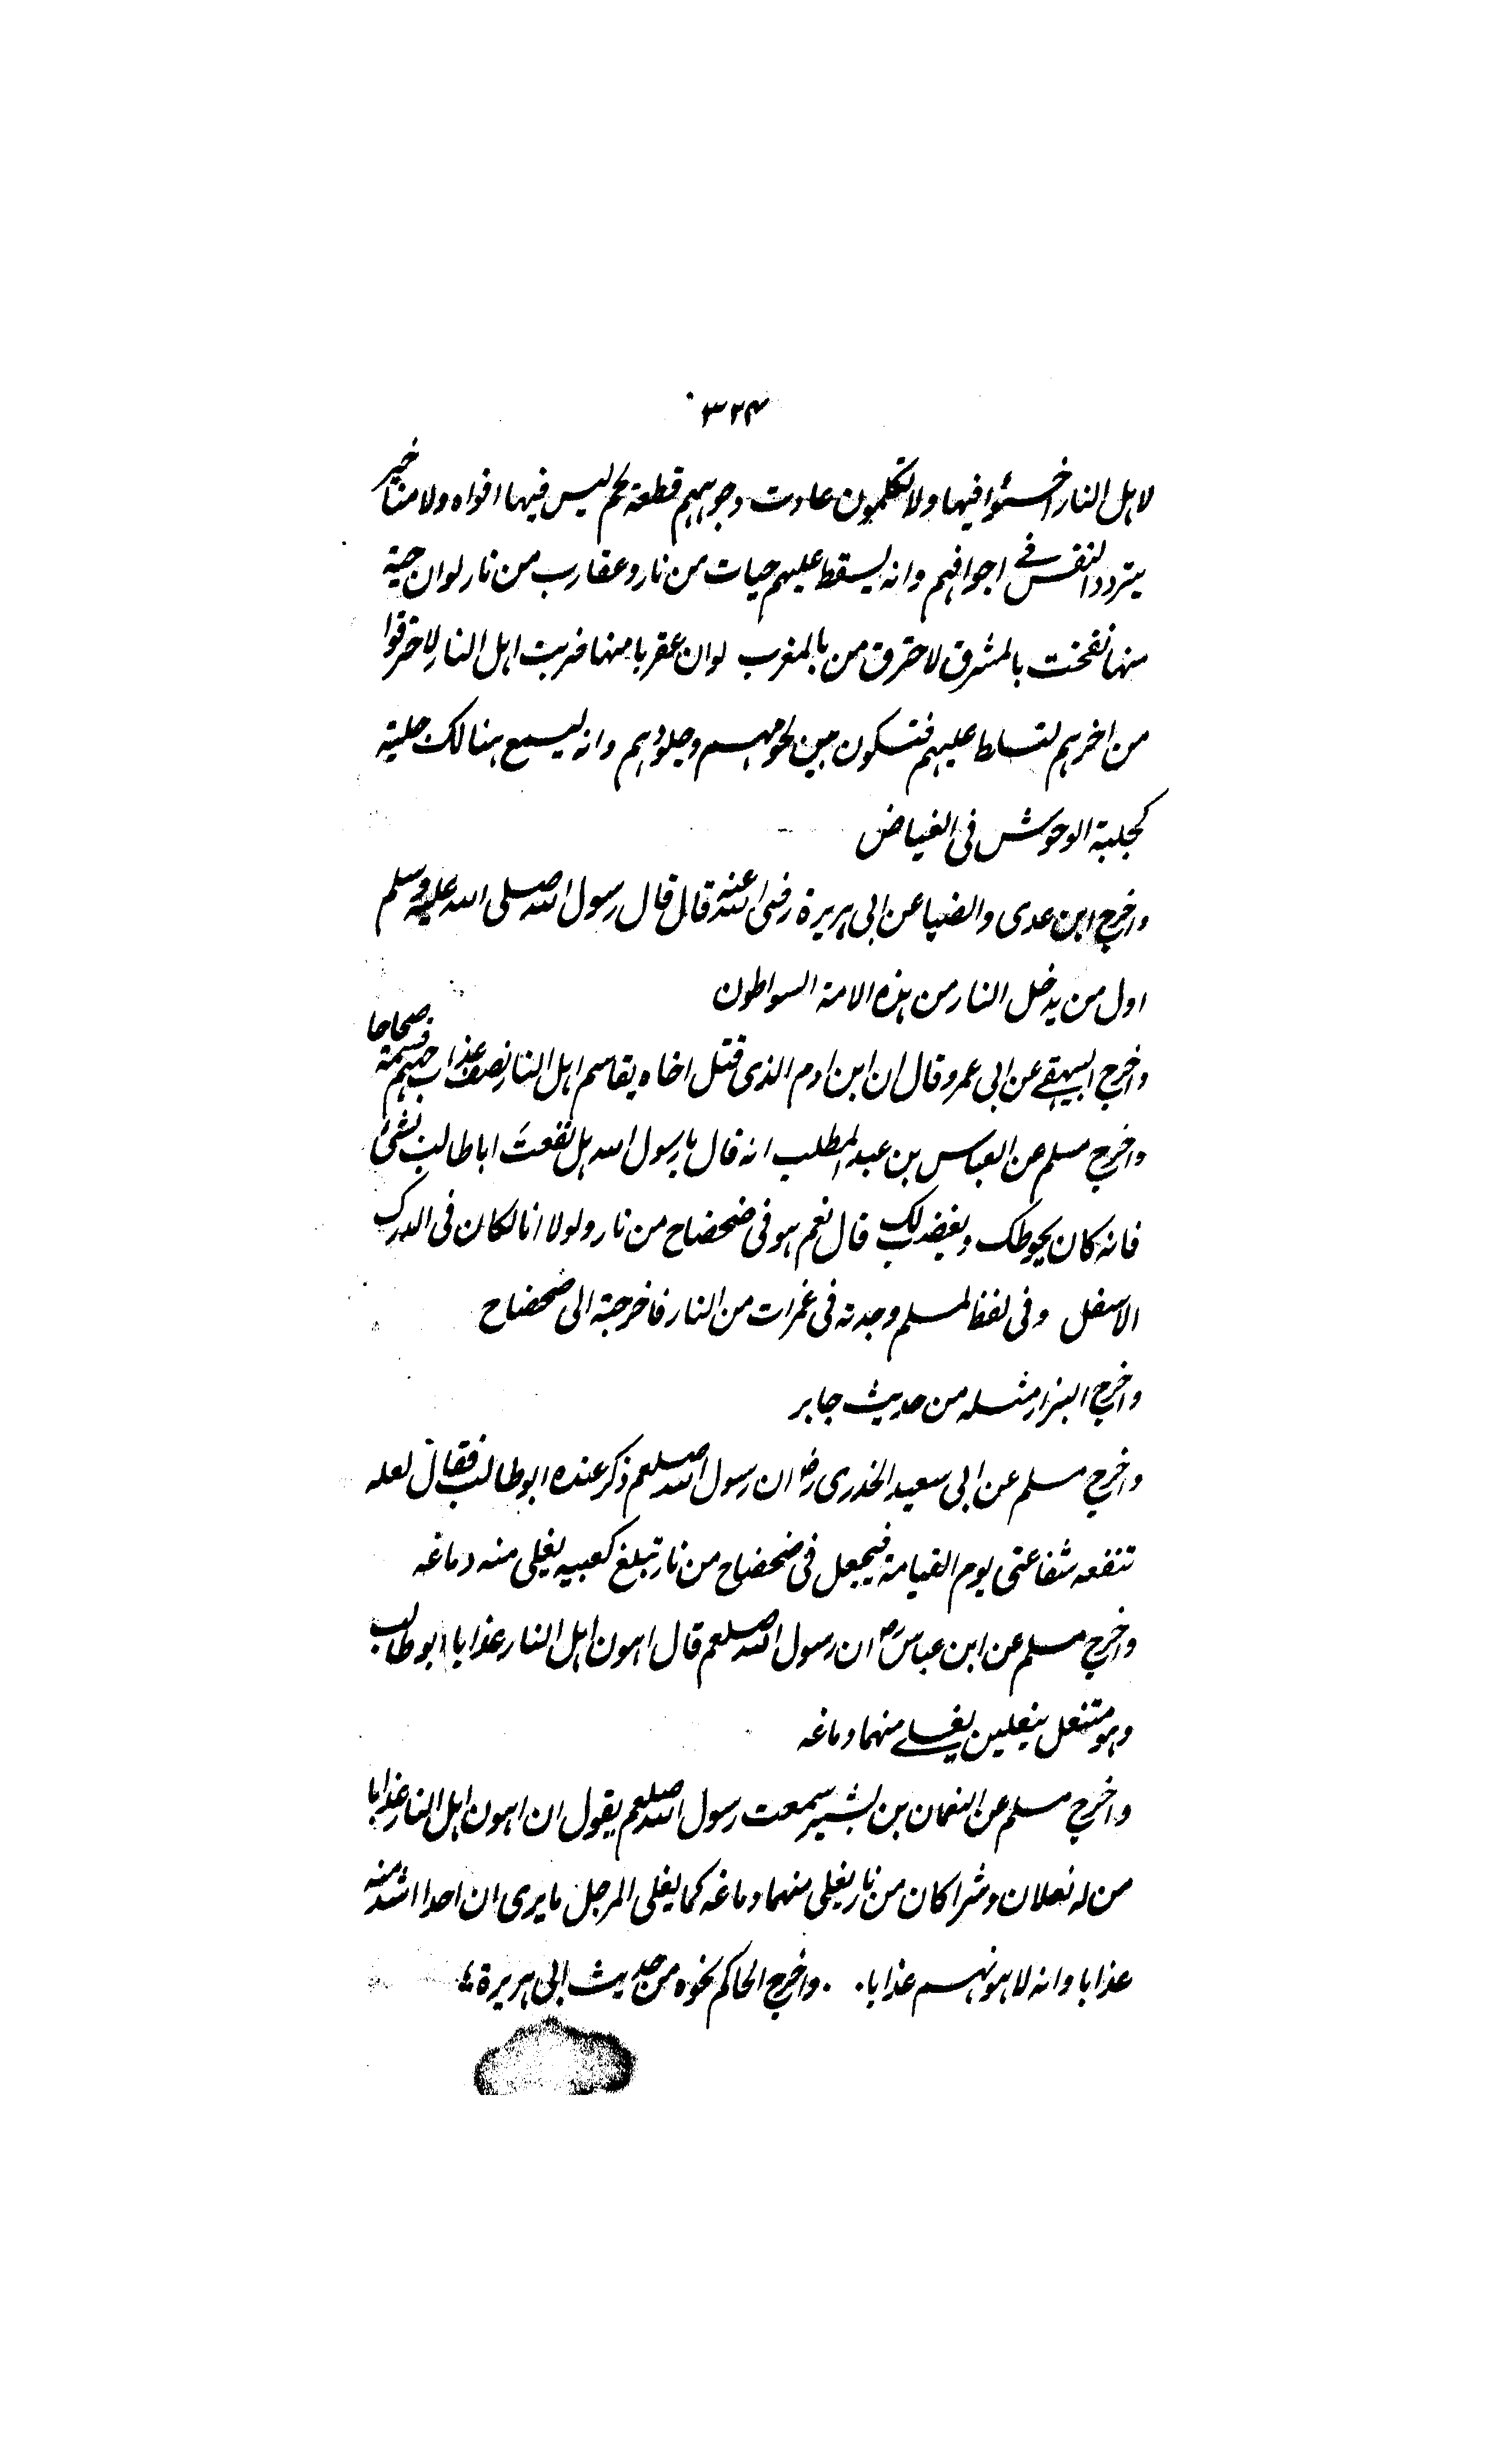 ۳۲۴
لاہل النار اخسئوا فیہا ولا تکلمون عادت وجوہہم قطعۃ لحم لیس فیہا افواہ ولا مناخیر
یتردد النفس فی اجوافہم وانہ لیسقط علیہم حیات من نار وعقارب من نار لو ان حیۃ
منہا نفخت بالمشرق لاحترق من بالمغرب لو ان عقربا منہا ضربت اہل النار لاحترقوا
من اخرہم لتسلط علیہم فتکون بین لحومہم وجلودہم وانہ لیسمع ہنالک جلبۃ
کجلبۃ الوحوش فی الغیاض
واخرج ابن عدی والضیا عن ابی ہریرۃ رضی اللہ عنہ قال قال رسول اللہ صلی اللہ علیہ وسلم
اول من یدخل النار من ہذہ الامۃ السواطون
واخرج البیہقی عن ابی عمرو قال ان ابن ادم الذی قتل اخاہ یقاسم اہل النار نصف عذاب جہنم قسمۃ صحاحا
واخرج مسلم عن العباس بن عبد المطلب انہ قال یا رسول اللہ ہل نفعت ابا طالب بشئ
فانہ کان یحوطک ویغضب لک قال نعم ہو فی ضحضاح من نار ولولا انا لکان فی الدرک
الاسفل وفی لفظ لمسلم وجدتہ فی غمرات من النار فاخرجتہ الی ضحضاح
واخرج البزار مثلہ من حدیث جابر
واخرج مسلم عن ابی سعید الخدری رض ان رسول اللہ صلعم ذکر عندہ ابو طالب فقال لعلہ
تنفعہ شفاعتی یوم القیامۃ فیجعل فی ضحضاح من نار تبلغ کعبیہ یغلی منہ دماغہ
واخرج مسلم عن ابن عباس رض ان رسول اللہ صلعم قال اہون اہل النار عذابا ابو طالب
وہو متنعل بنعلین یغلی منہما دماغہ
واخرج مسلم عن النعمان بن بشیر سمعت رسول اللہ صلعم یقول ان اہون اہل النار عذابا
من لہ نعلان وشراکان من نار یغلی منہما دماغہ کما یغلی المرجل ما یری ان احدا اشد منہ
عذابا وانہ لاہونہم عذابا. . واخرج الحاکم نحوہ من حدیث ابی ہریرۃ